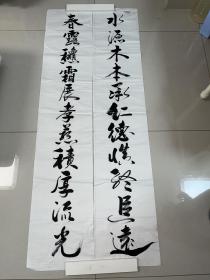 水源木本承仁德慎终追远
春露秋霜展孝慈积厚流光